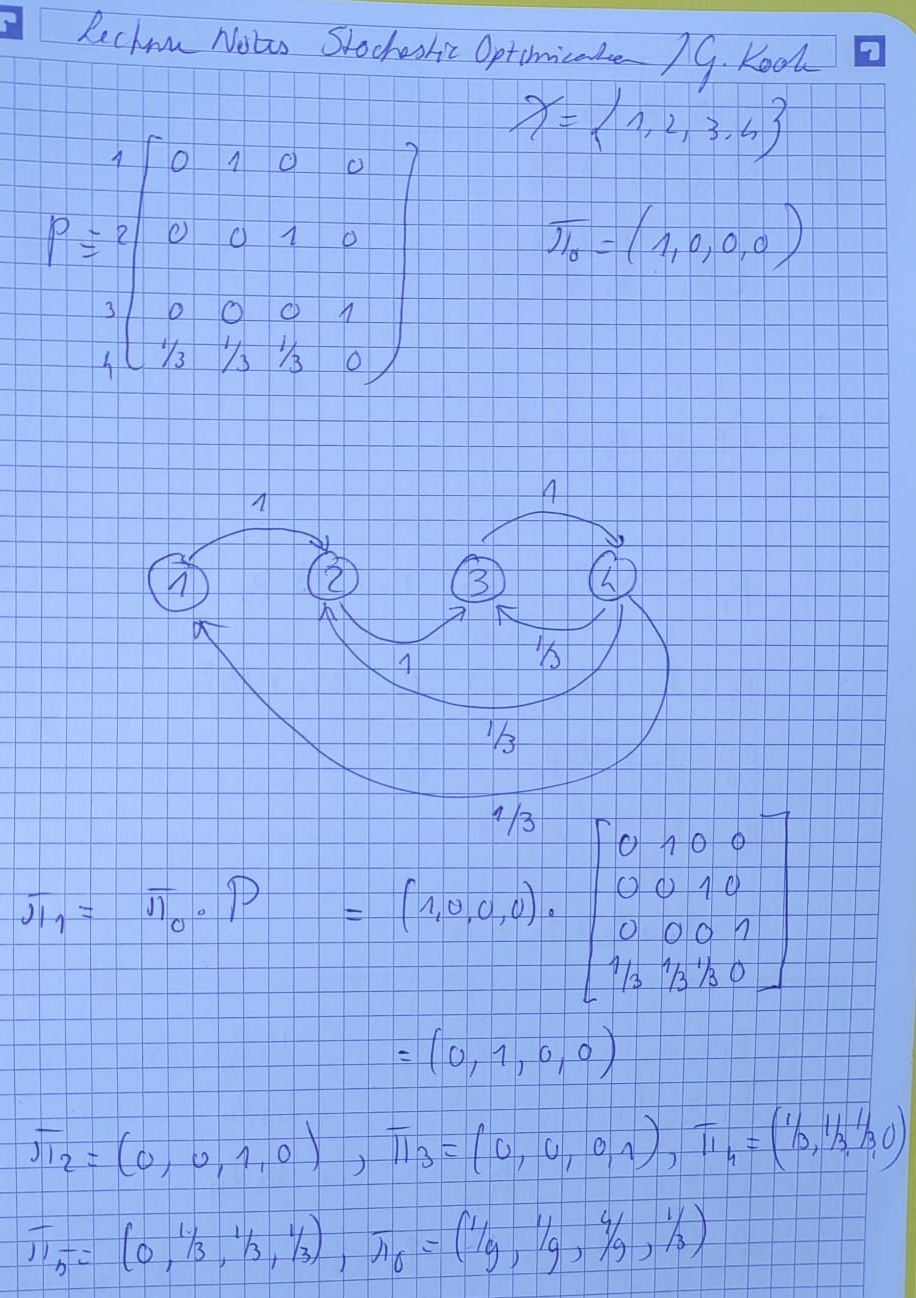 Lecture Notes Stochastic Optimization / G. Koole
X = {1, 2, 3, 4}
1 0 1 0 0
P = 2 0 0 1 0
π₀ = (1, 0, 0, 0)
3 0 0 0 1
4 1/3 1/3 1/3 0
1 1
1 2 3 4
1 1/3
1/3
1/3
π₁ = π₀ · P = (1,0,0,0) · [0 1 0 0
0 0 1 0
0 0 0 1
1/3 1/3 1/3 0]
= (0, 1, 0, 0)
π₂ = (0, 0, 1, 0), π₃ = (0, 0, 0, 1), π₄ = (1/3, 1/3, 1/3, 0)
π₅ = (0, 1/3, 1/3, 1/3), π₆ = (1/9, 1/9, 4/9, 1/3)